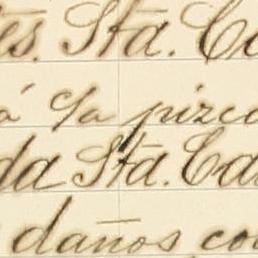 es. Sta. Ca
á c/a pizca
da Sta. Cat
daños con